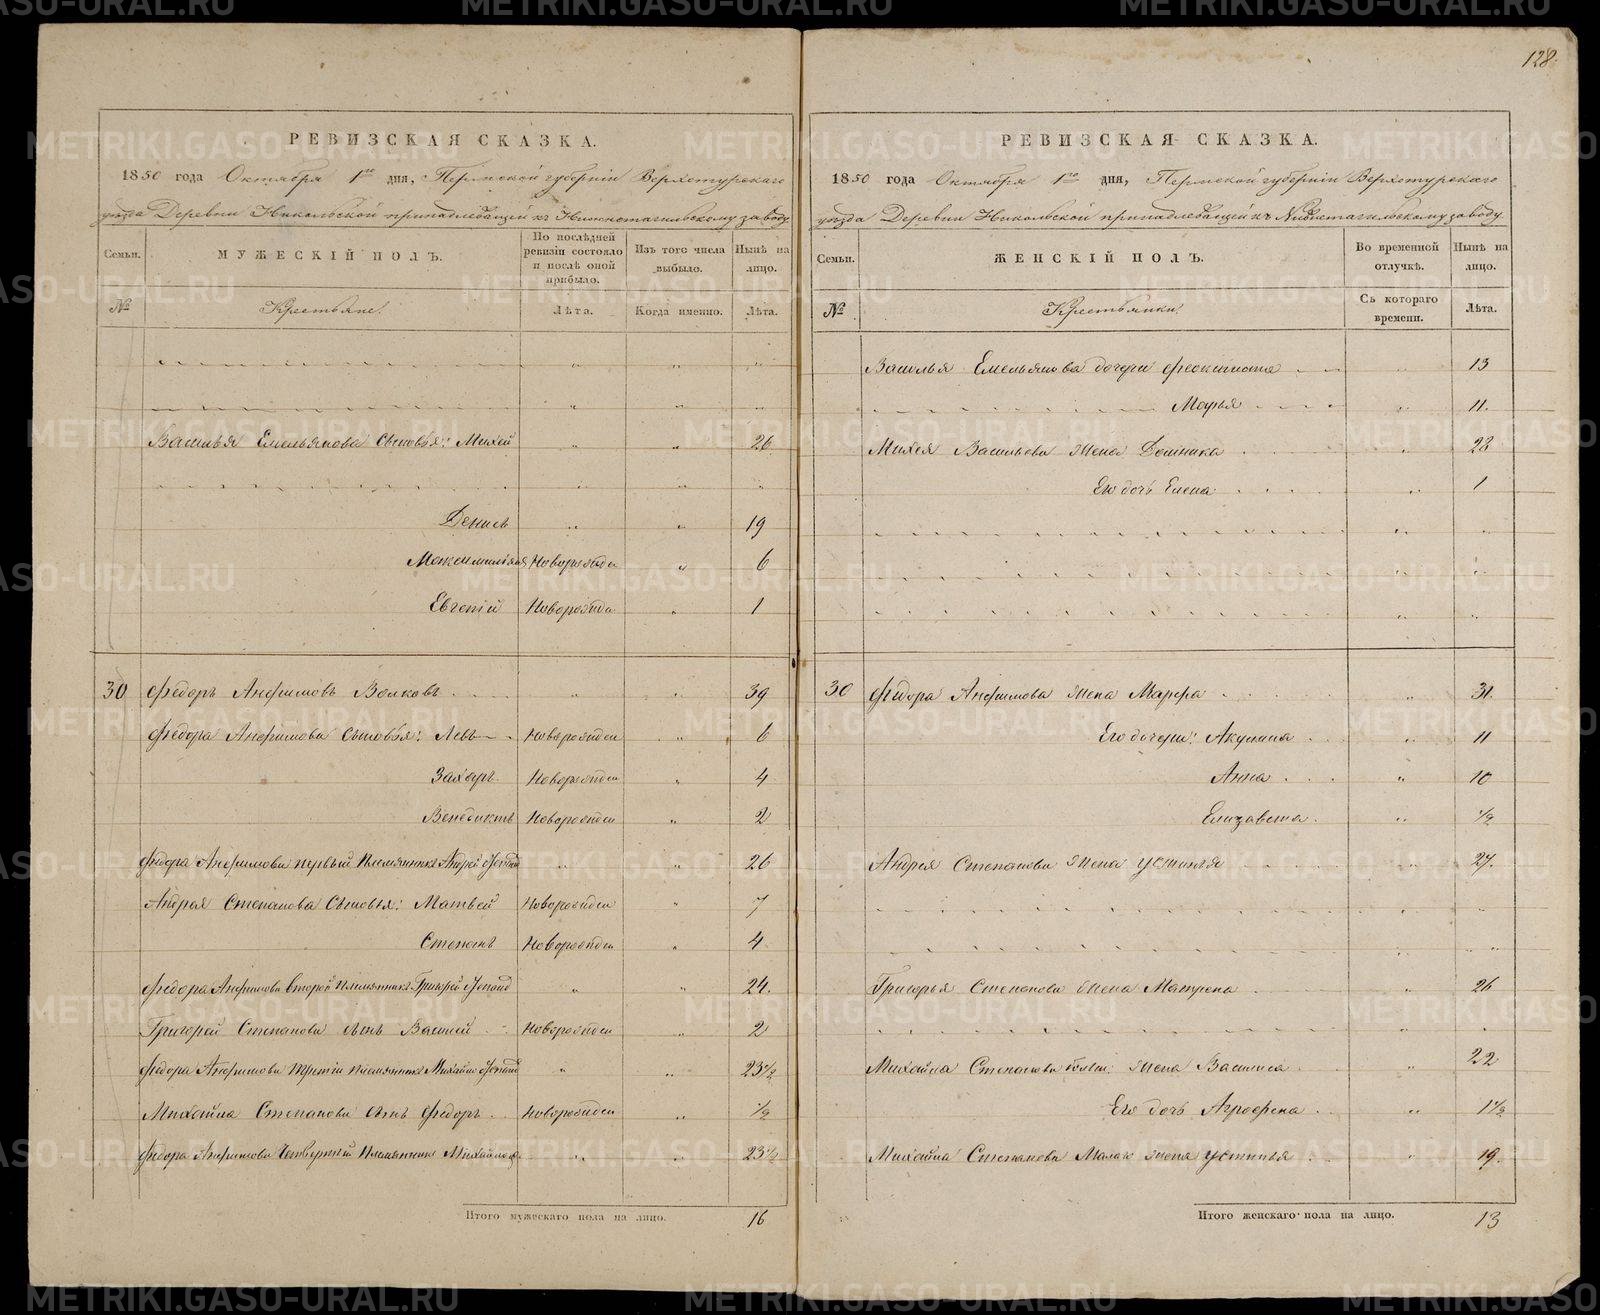 128.
РЕВИЗСКАЯ СКАЗКА.
1850 года Октября 1го дня, Пермской губернiи Верхотурскаго
уѣзда Деревни Никольской принадлежащей къ Нижнетагильскому заводу
Семьи.
МУЖЕСКIЙ ПОЛЪ.
По послѣдней ревизiи состояло и послѣ оной прибыло.
Изъ того числа выбыло.
Нынѣ на лицо.
№
Крестьяне.
Лѣта.
Когда именно.
Лѣта.
Василья Емельянова Сыновья: Михей " " 26
Денисъ " " 19
Максимилiянъ Новорожден " 6
Евгенiй Новорожде " 1
30 Федоръ Анфимовъ Волковъ " " 39
Федора Анфимова Сыновья: Левъ Новорожден " 6
Захаръ Новорожден " 4
Венедиктъ Новорожден " 2
Федора Анфимова первый Племянникъ Андрей " " 26
Андрея Степанова Сыновья: Матвей Новорожден " 7
Степанъ Новорожден " 4
Федора Анфимова второй Племянникъ Григорей " " 24.
Григорья Степанова сынъ Василей Новорожден " 2
Федора Анфимова третiй племянникъ Михайло " " 23½
Михайла Степанова сынъ Федоръ Новорожден " ½
Федора Анфимова Четвертый Племянникъ Михайло " " 23½
Итого мужескаго пола на лицо. 16
РЕВИЗСКАЯ СКАЗКА.
1850 года Октября 1го дня, Пермской губернiи Верхотурскаго
уѣзда Деревни Никольской принадлежащей къ Нижнетагильскому заводу.
Семьи.
ЖЕНСКIЙ ПОЛЪ.
Во временной отлучкѣ.
Нынѣ на лицо.
№
Крестьянки.
Съ котораго времени.
Лѣта.
Василья Емельянова дочери Феоктиста " 13
Марья " 11.
Михея Васильева жена Домника " 28
Его дочь Елена " 1
30 Федора Анфимова жена Марфа " 31.
Его дочери: Акулина " 11
Анна " 10
Елизавета " ½
Андрея Степанова жена Устинья " 27.
Григорья Степанова жена Матрена " 26
Михайла Степанова жена Василиса " 22
Его дочь Агрофена " 1½
Михайла Степанова Малаго жена Устинья " 19.
Итого женскаго пола на лицо. 13
METRIKI.GASO-URAL.RU